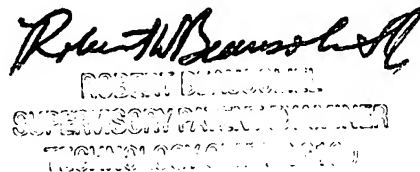 Robert W Beausoleil
ROBERT W. BEAUSOLEIL
SUPERVISORY PATENT EXAMINER
TECHNOLOGY CENTER